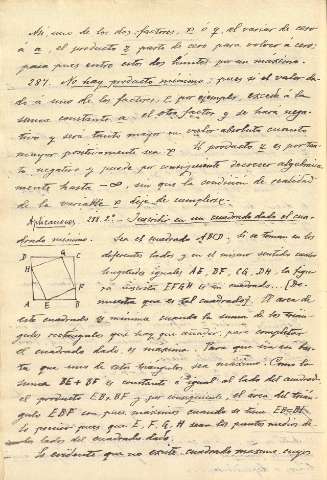 Mi uno de los dos factores, x ó y, al variar de cero
á a, el producto z parte de cero para volver á cero;
pasa pues entre estos dos límites por un máximo.
287. No hay producto mínimo; pues si el valor da-
do á uno de los factores, x por ejemplo, excede á la
suma constante a el otro factor y se hará nega-
tivo y será tanto mayor en valor absoluto cuanto
mayor positivamente sea x. El producto z es por tan-
to negativo y puede por consiguiente decrecer algebraica
mente hasta -∞, sin que la condición de realidad
de la variable x deje de cumplirse.
Aplicaciones 288. 2º Inscribir en un cuadrado dado el cua-
drado mínimo. Sea el cuadrado ABCD. Si se toman en los
diferentes lados y en el mismo sentido cuatro
longitudes iguales AE, BF, CG, DH, la figu-
ra inscrita EFGH es un cuadrado... (De-
muestra que es tal cuadrado). El area de
este cuadrado es mínima cuando la suma de los trián-
gulos rectángulos que hay que añadir para completar
el cuadrado dado, es máxima. Para que sea así bas-
ta que uno de estos triángulos sea máximo. Como la
suma BE + BF es constante é igual al lado del cuadrado
el producto EB.BF y por consiguiente, el area del trian-
gulo EBF son pues máximos cuando se tiene EB=BF
Es preciso pues que E, F, G, H sean los puntos medios de
los lados del cuadrado dado.
Es evidente que no existe cuadrado máximo cuyos
D G C
H
F
A E B